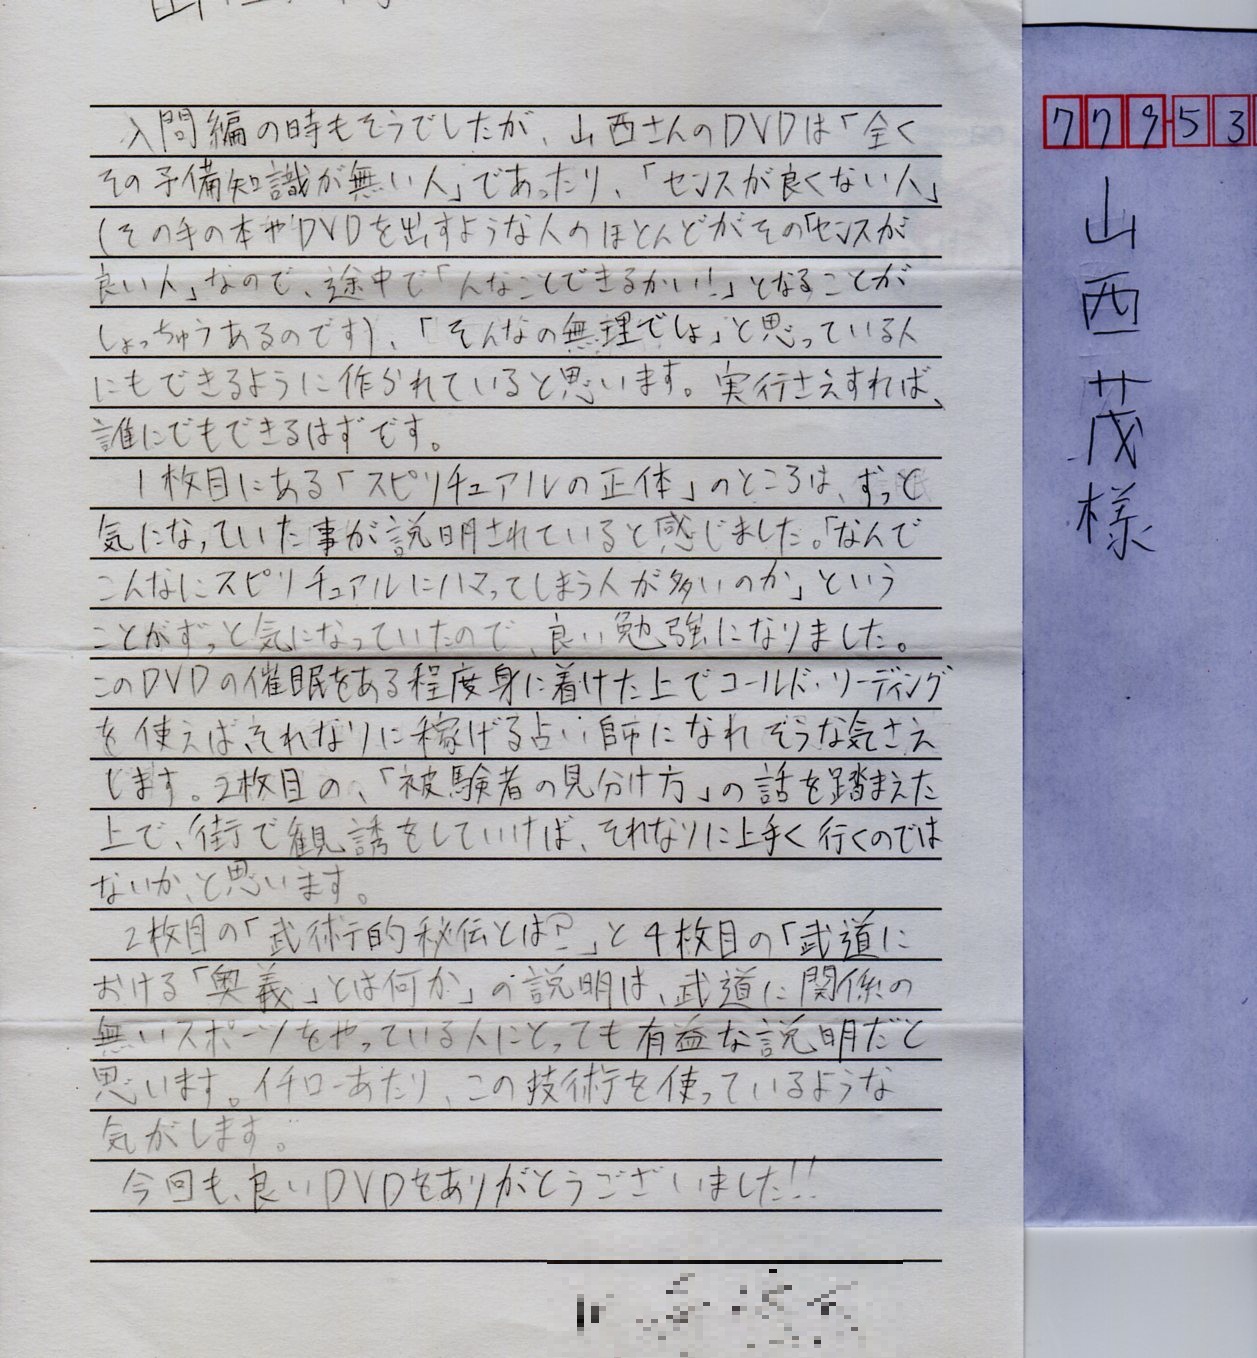 入門編の時もそうでしたが、山西さんのDVDは「全く
その予備知識が無い人」であったり、「センスが良くない人」
(その手の本やDVDを出すような人のほとんどがその「センスが
良い人」なので、途中で「んなことできるかい!」となることが
しょっちゅうあるのです)、「そんなの無理でしょ」と思っている人
にもできるように作られていると思います。実行さえすれば、
誰にでもできるはずです。
1枚目にある「スピリチュアルの正体」のところは、ずっと
気になっていた事が説明されていると感じました。「なんで
こんなにスピリチュアルにハマってしまう人が多いのか」という
ことがずっと気になっていたので、良い勉強になりました。
このDVDの催眠をある程度身に着けた上でコールド・リーディング
を使えば、それなりに稼げる占い師になれそうな気さえ
します。2枚目の、「被験者の見分け方」の話を踏まえた
上で、街で観誘をしていけば、それなりに上手く行くのでは
ないか、と思います。
2枚目の「武術的秘伝とは?」と4枚目の「武道に
おける「奥義」とは何か」の説明は、武道に関係の
無いスポーツをやっている人にとっても有益な説明だと
思います。イチローあたり、この技術を使っているような
気がします。
今回も、良いDVDをありがとうございました!!
779-53
山西茂様